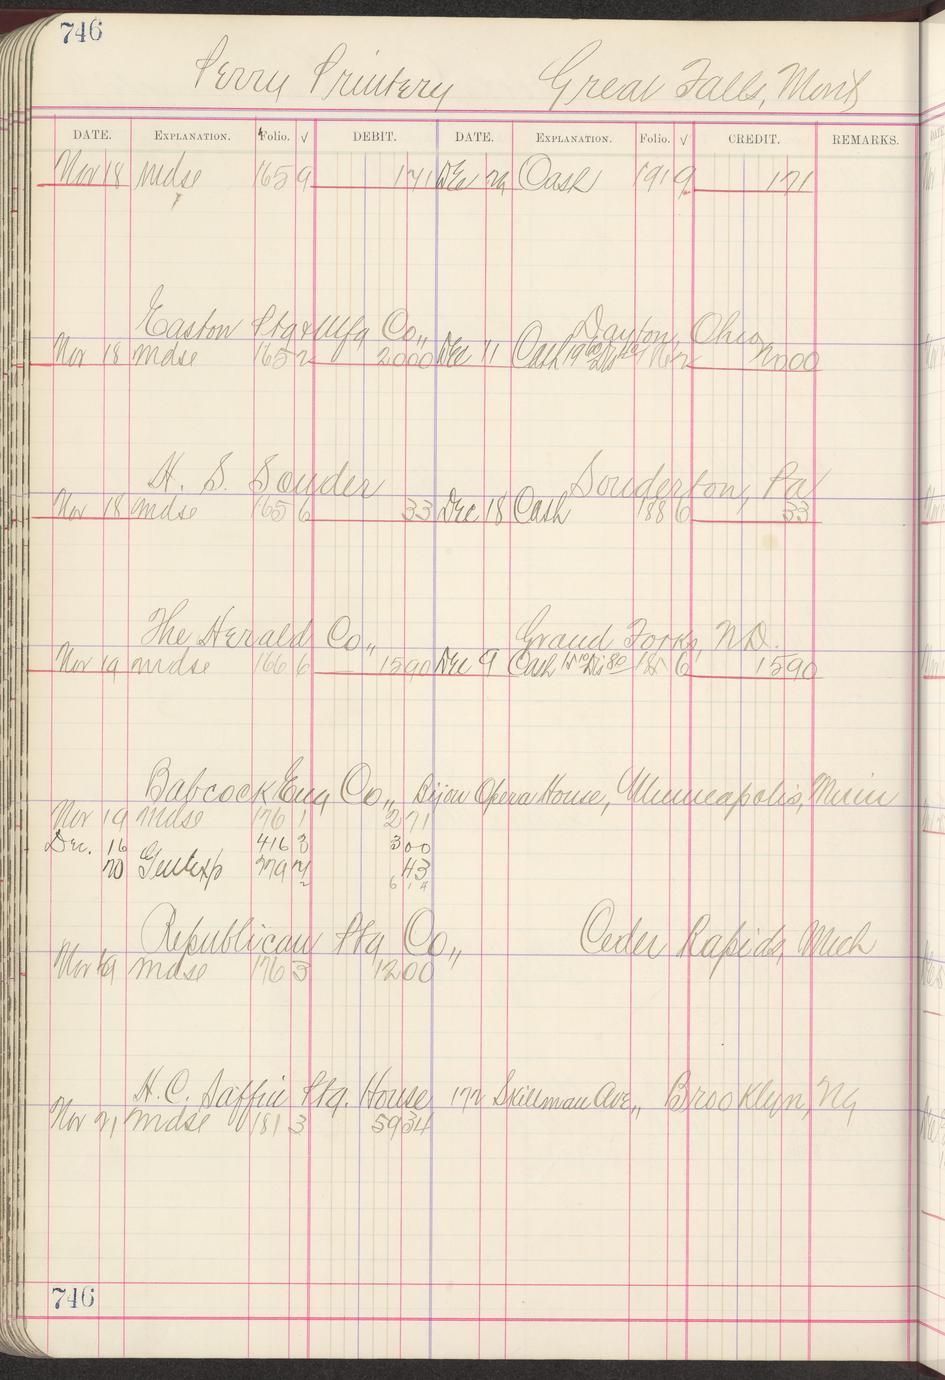 746
Perry Printery Great Falls, Mont
DATE. EXPLANATION. Folio. √ DEBIT. DATE. EXPLANATION. Folio. √ CREDIT. REMARKS.
Nov 18 mdse 165 9 171 Dec 24 Cash 191 9 171
Easton Ptg & Mfg Co,, Dayton, Ohio
Nov 18 mdse 165 2 2000 Dec 11 Cash 19 60 Dis 40 2 2000
H. S. Souder Souderton, Pa
Nov 18 mdse 165 6 33 Dec 18 Cash 188 6 33
The Herald Co,, Grand Forks, N.D.
Nov 19 mdse 166 6 1590 Dec 9 Cash Dis 80 6 1590
Babcock Eng Co,, Bijou Opera House, Minneapolis, Minn
Nov 19 mdse 176 1 271
Dec. 16 416 3 300
20 Genl Exp 279 43
614
Republican Ptg Co,, Ceder Rapids, Mich
Nov 19 mdse 176 3 1200
H. C. Ptg. House 172 Skillman Ave,, Brooklyn, Ny
Nov 21 mdse 181 3 5934
746